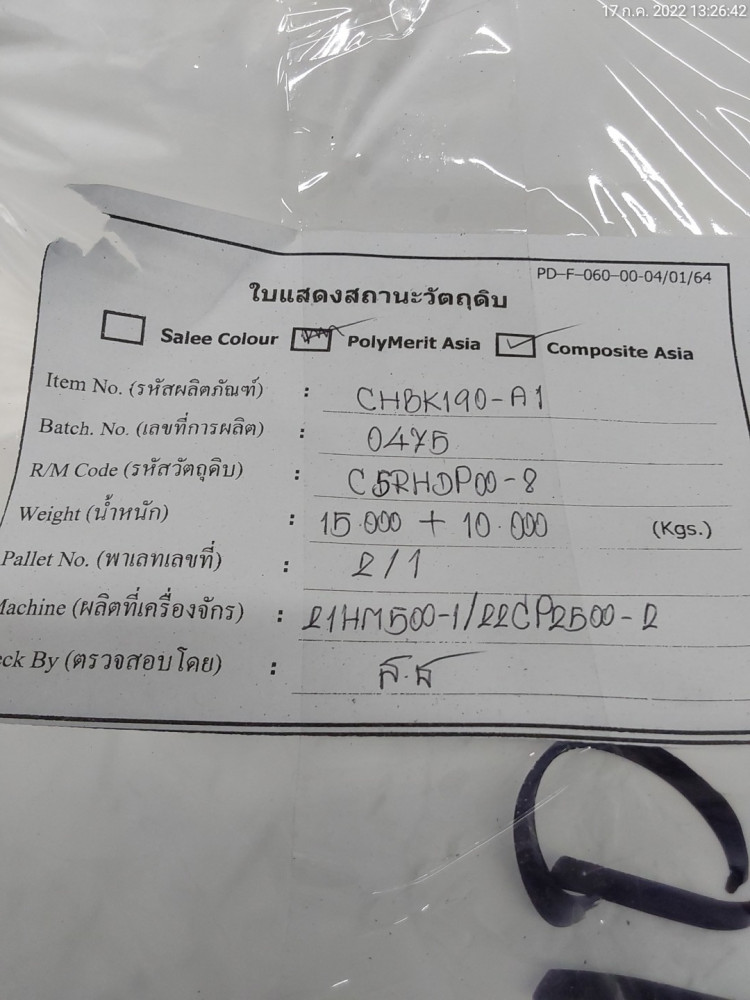 17 ก.ค. 2022 13:26:42
PD-F-060-00-04/01/64
ใบแสดงสถานะวัตถุดิบ
Salee Colour PolyMerit Asia Composite Asia
Item No. (รหัสผลิตภัณฑ์) : CHBK190-A1
Batch. No. (เลขที่การผลิต) : 0475
R/M Code (รหัสวัตถุดิบ) : C5RHDP00-8
Weight (น้ำหนัก) : 15.000 + 10.000 (Kgs.)
Pallet No. (พาเลทเลขที่) : 2/1
Machine (ผลิตที่เครื่องจักร) : 21HM500-1/22CP2500-2
eck By (ตรวจสอบโดย) :